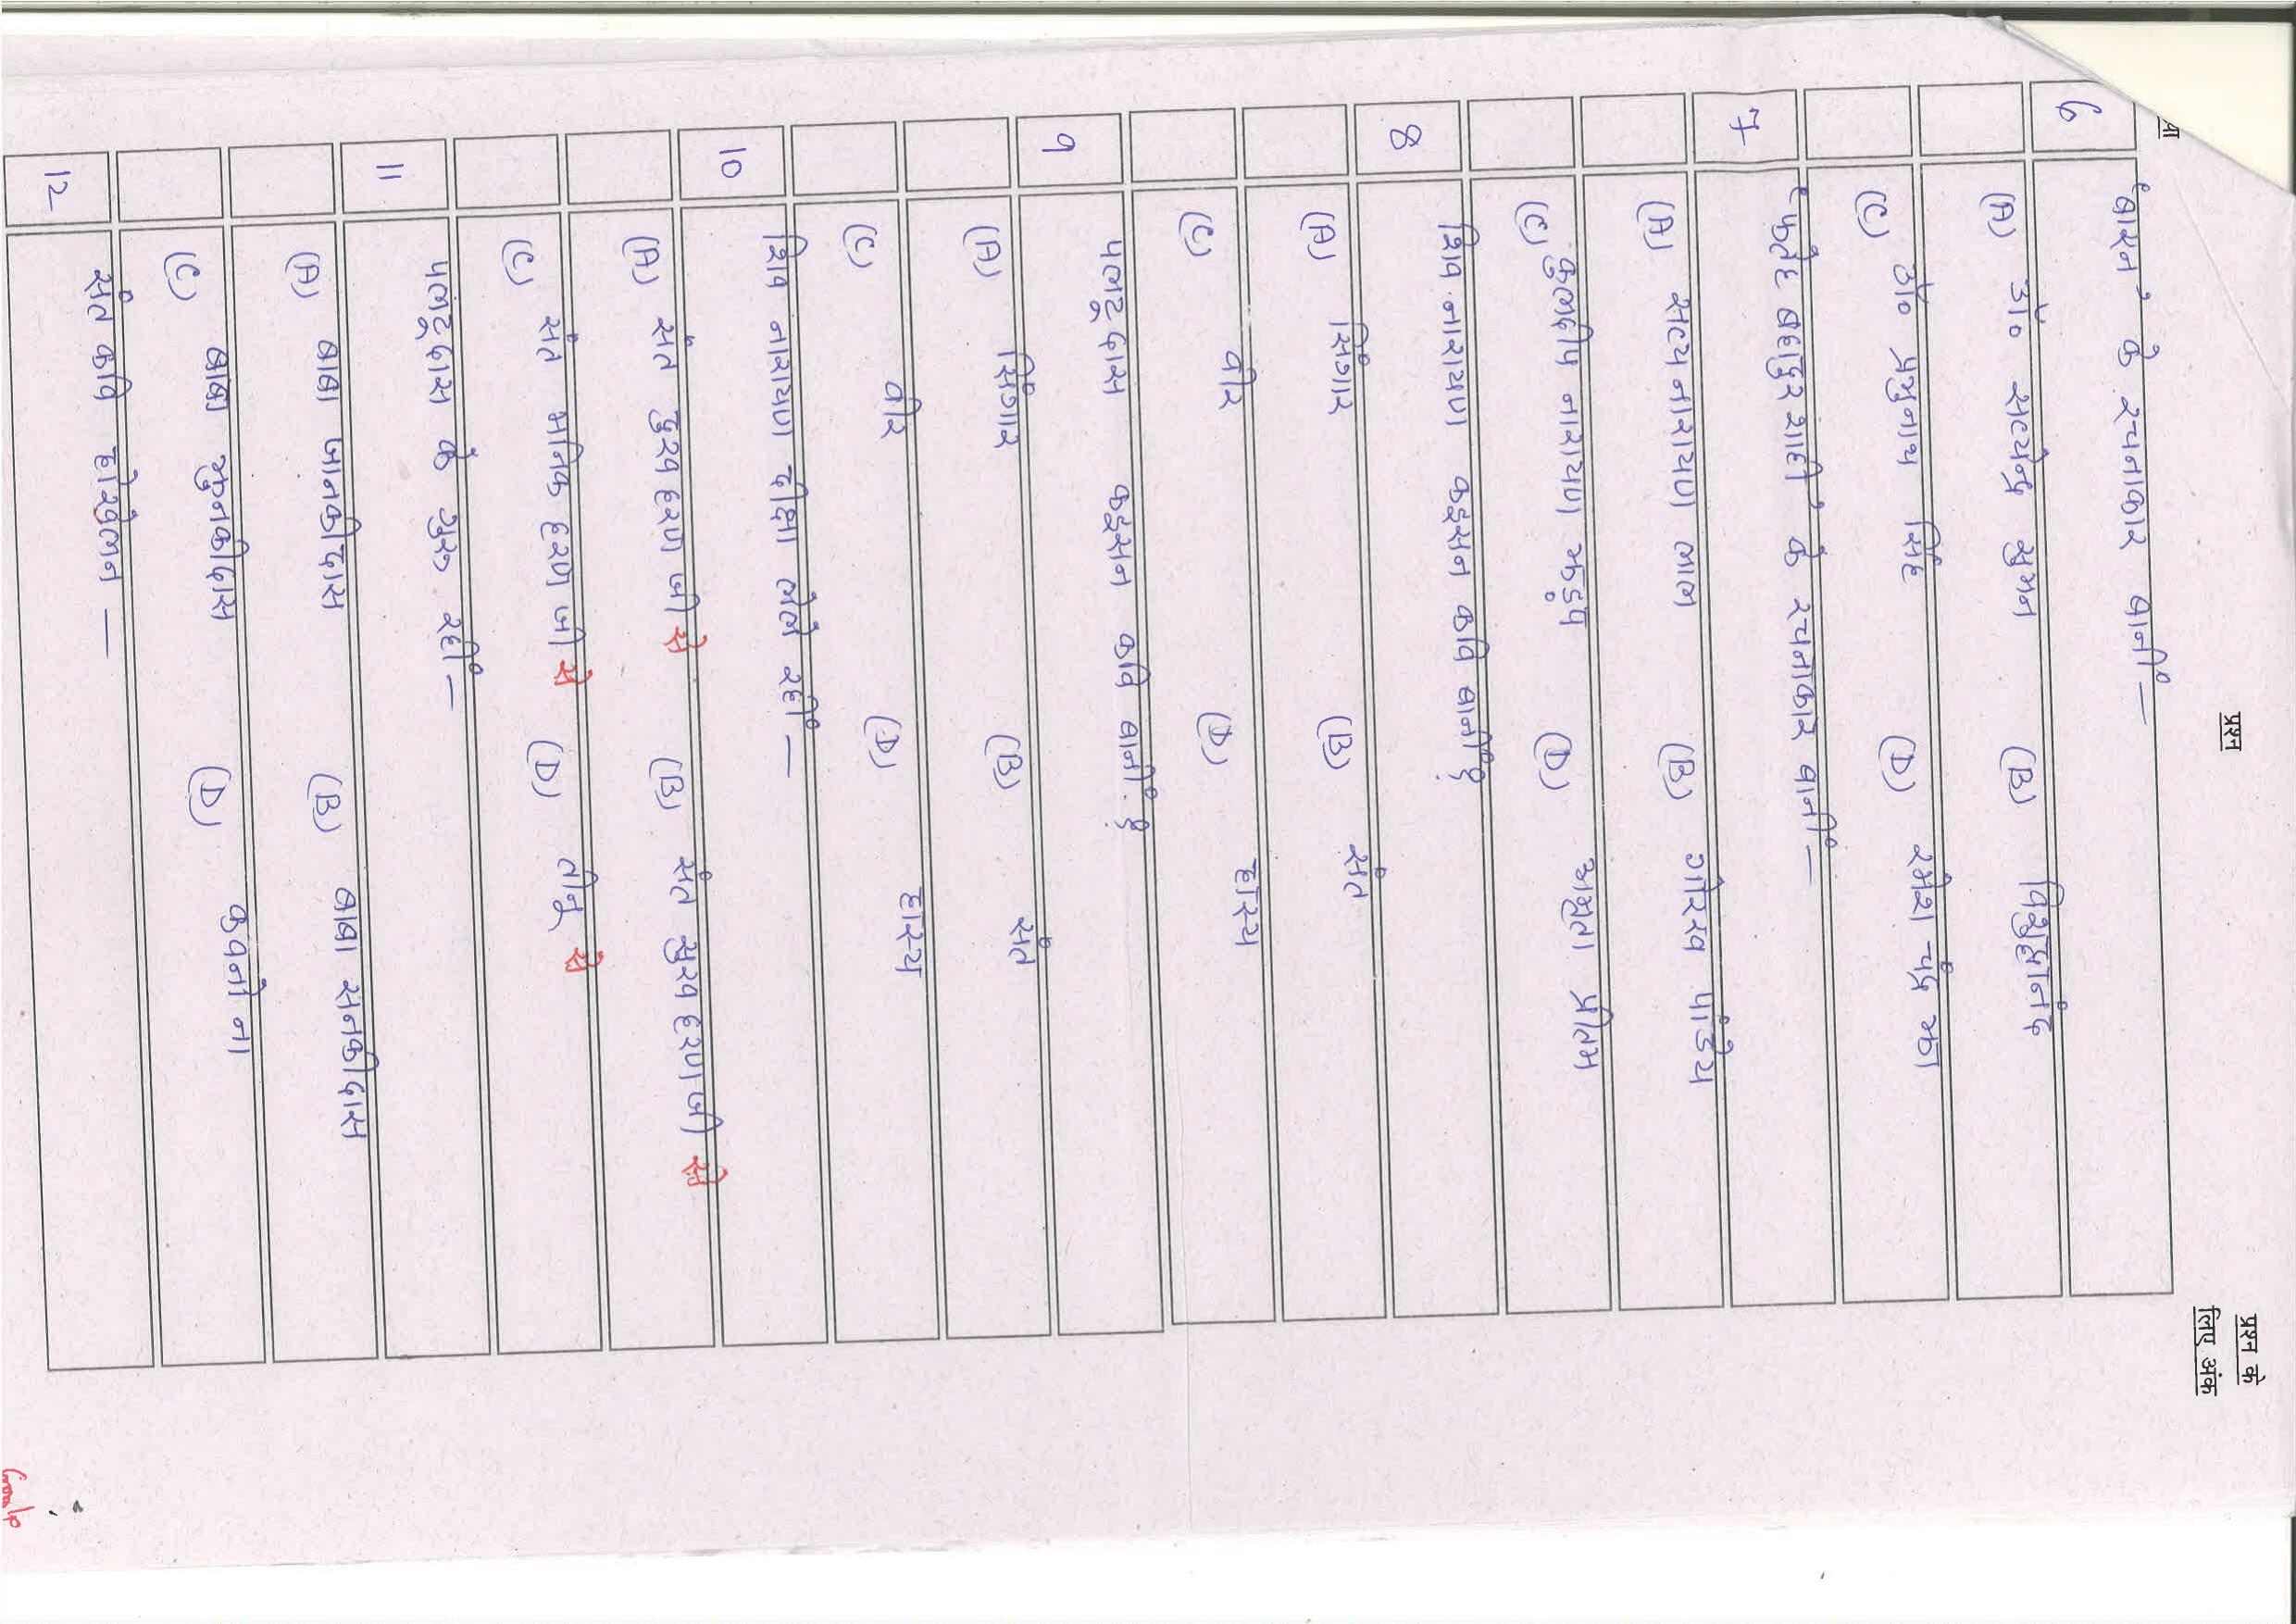 प्रश्न
प्रश्न के
लिए अंक
6 "बासन" के रचनाकार बानीं —
(A) डॉ० सत्येन्द्र सुमन (B) विशुद्धानंद
(C) डॉ० प्रभुनाथ सिंह (D) रमेश चंद्र झा
7 "फतेह बहादुर शाही" के रचनाकार बानीं —
(A) सत्य नारायण लाल (B) गोरख पांडेय
(C) कुलदीप नारायण झड़प (D) अक्षुता प्रीतम
8 शिव नारायण कइसन कवि बानीं ?
(A) सिंगार (B) संत
(C) वीर (D) हास्य
9 पलटूदास कइसन कवि बानीं ?
(A) सिंगार (B) संत
(C) वीर (D) हास्य
10 शिव नारायण दीक्षा लेले रहीं —
(A) संत दुख हरण जी से (B) संत सुख हरण जी से
(C) संत मानिक हरण जी से (D) तीनू से
11 पलटूदास के गुरु रहीं —
(A) बाबा जानकीदास (B) बाबा सनकीदास
(C) बाबा झुनकीदास (D) कवनो ना
12 संत कवि होखेलन —